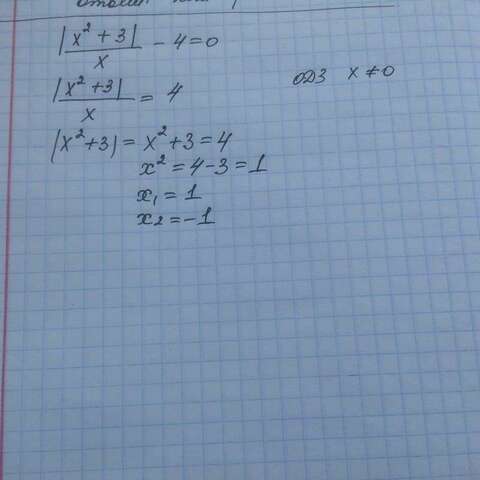 |x² + 3|/x - 4 = 0
|x² + 3|/x = 4 ОДЗ x ≠ 0
|x² + 3| = x² + 3 = 4
x² = 4 - 3 = 1
x₁ = 1
x₂ = -1